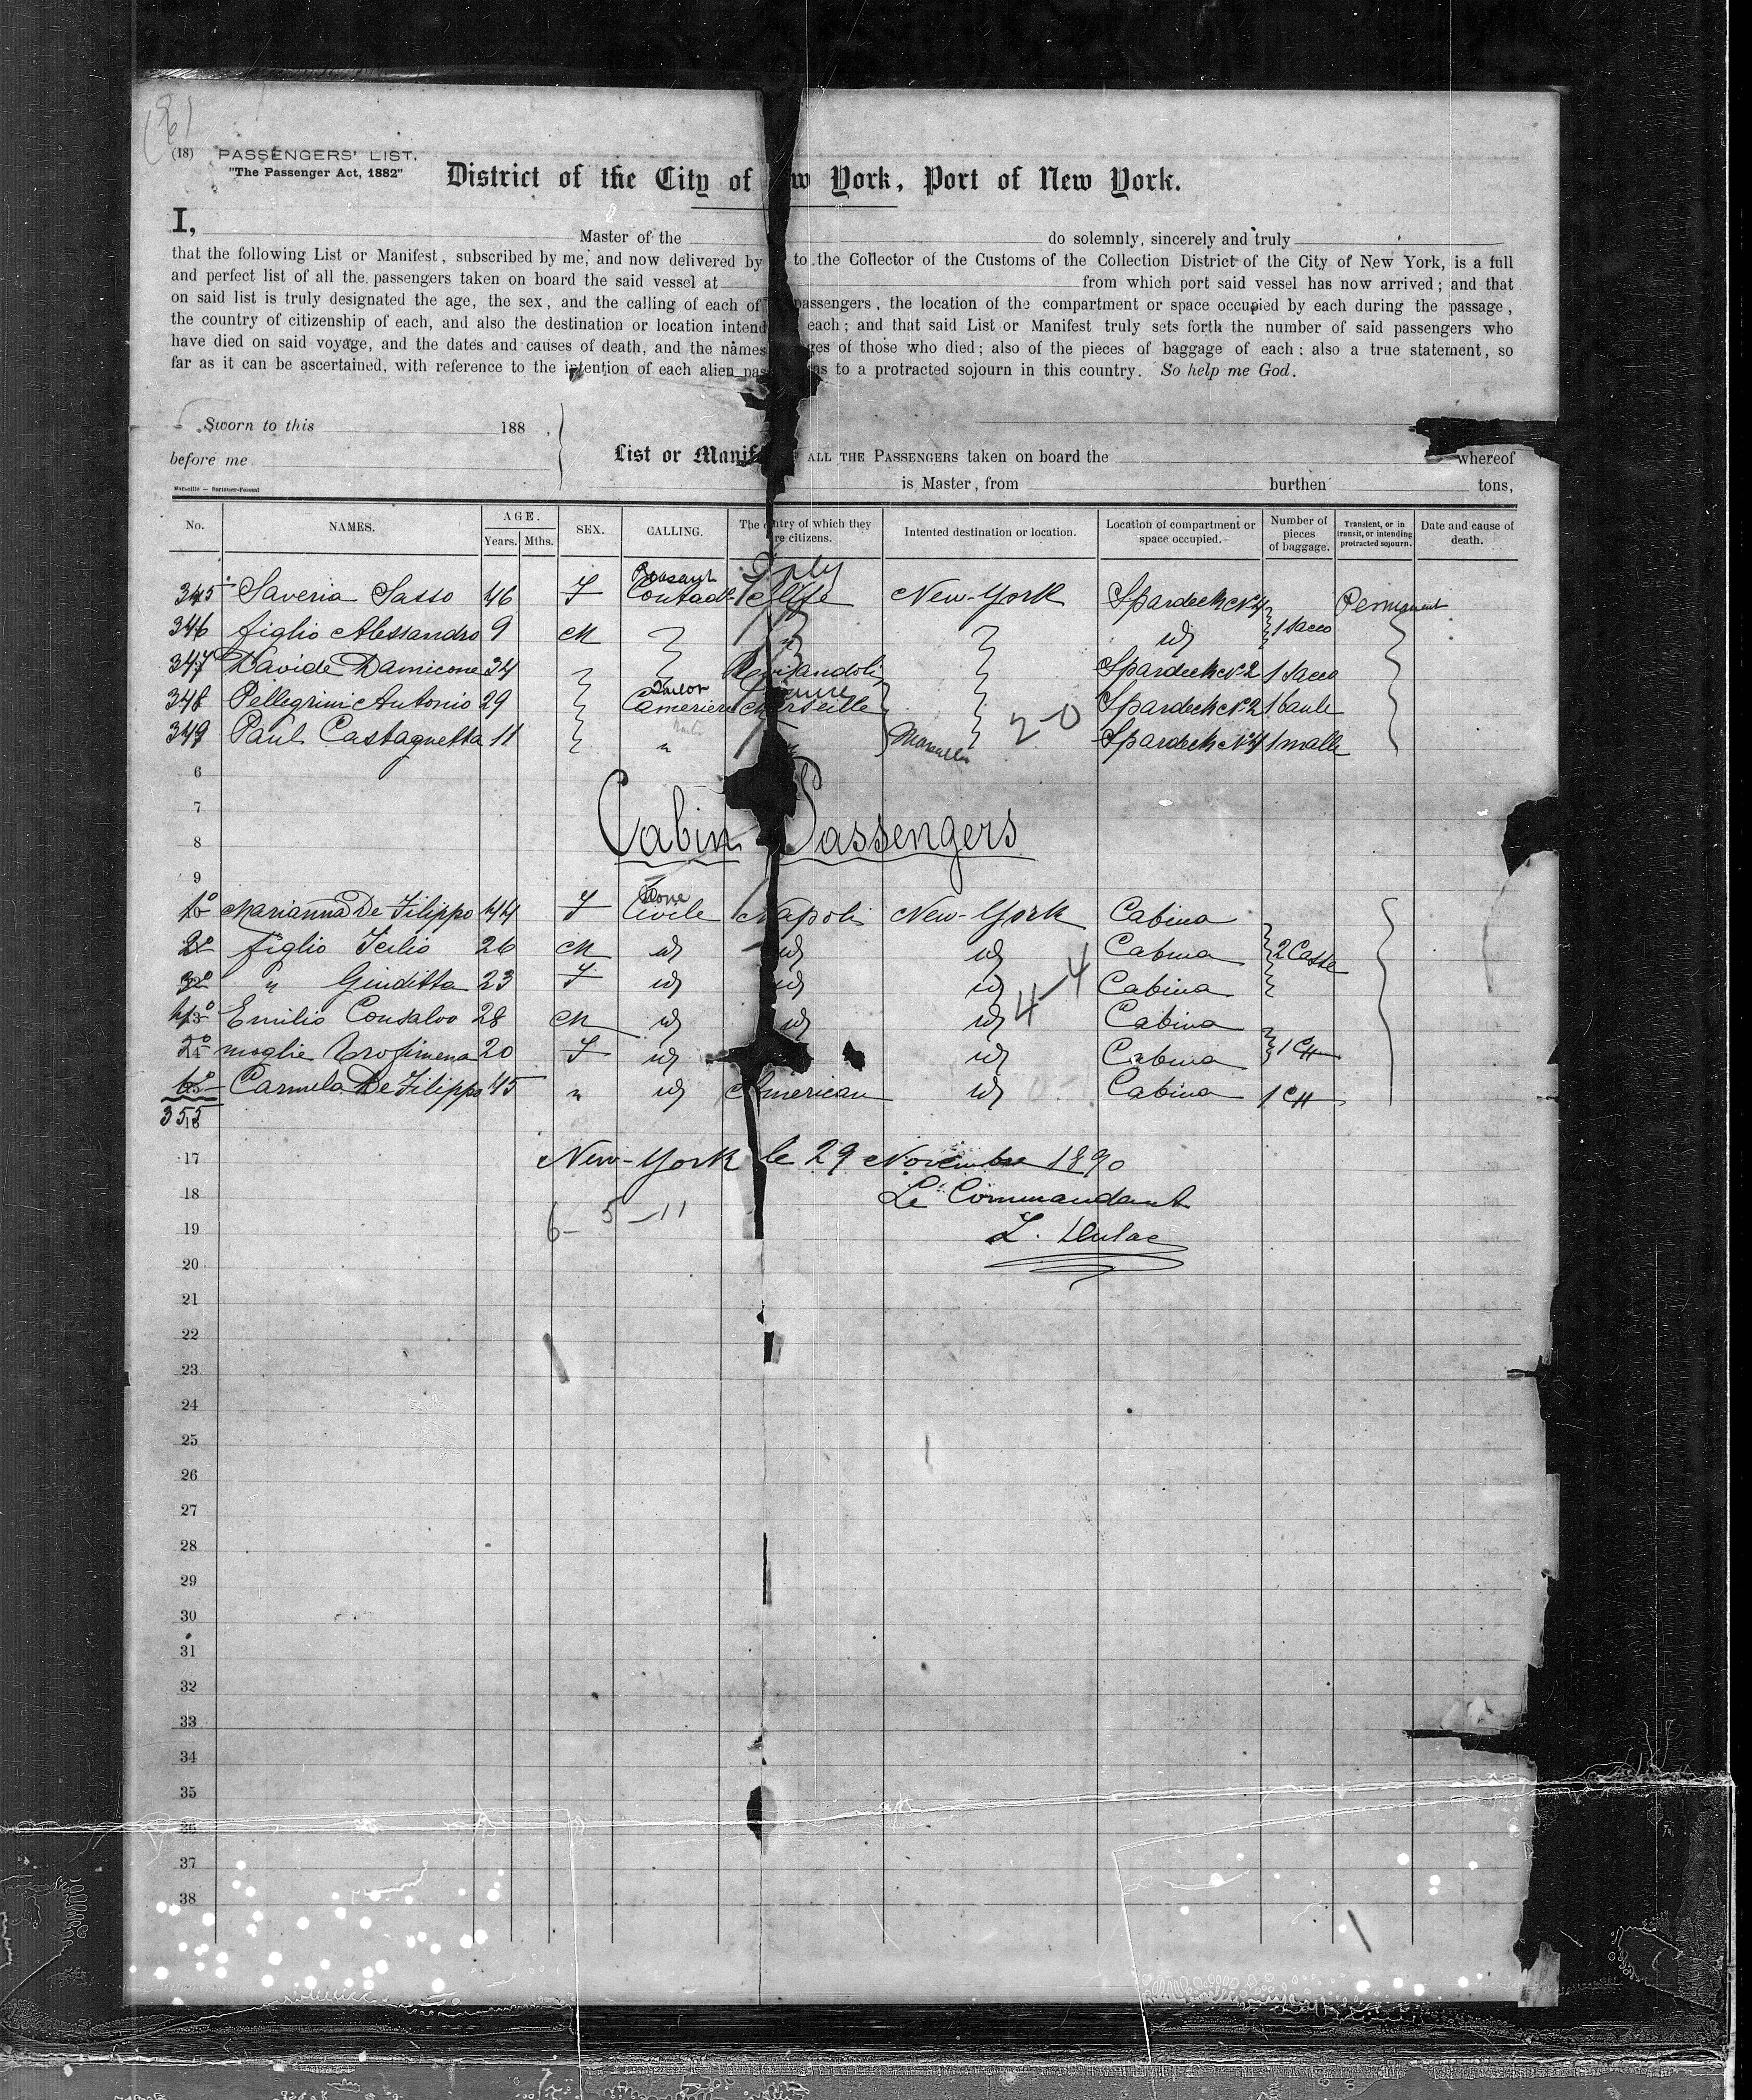 (18) PASSENGERS' LIST.
"The Passenger Act, 1882"
District of the City of w York, Port of New York.
I, Master of the do solemnly, sincerely and truly
that the following List or Manifest, subscribed by me, and now delivered by to the Collector of the Customs of the Collection District of the City of New York, is a full
and perfect list of all the passengers taken on board the said vessel at from which port said vessel has now arrived; and that
on said list is truly designated the age, the sex, and the calling of each of passengers, the location of the compartment or space occupied by each during the passage,
the country of citizenship of each, and also the destination or location intend each; and that said List or Manifest truly sets forth the number of said passengers who
have died on said voyage, and the dates and causes of death, and the names ges of those who died; also of the pieces of baggage of each: also a true statement, so
far as it can be ascertained, with reference to the intention of each alien pas as to a protracted sojourn in this country. So help me God.
Sworn to this 188 ,
before me
List or Manif ALL THE PASSENGERS taken on board the whereof
is Master, from burthen tons,
No. NAMES. AGE. Years. Mths. SEX. CALLING. The ntry of which they re citizens. Intented destination or location. Location of compartment or space occupied. Number of pieces of baggage. Transient, or in transit, or intending protracted sojourn. Date and cause of death.
Peasant Italy
345 Saveria Sasso 46 F Contad New-York Spardeck N4 Permanent
346 figlio Alessandro 9 M id 1 Sacco
347 Davide Damicone 34 Spardeck N.2 1 Sacco
348 Pellegrini Antonio 29 Cameriere Marseille Spardeck N.2 1 baule
349 Paul Castagnetta 11 " " 2-0 Spardeck N4 1 malle
6
7
8
Cabin Passengers
9
1º Marianna De Filippo 44 F Civile Napoli New-York Cabina
2º figlio Icilio 26 M id id id Cabina 2 Casse
3º " Giuditta 23 F id id id Cabina
4-4
4º Emilio Consalvo 28 M id id id Cabina
5º moglie Trofimena 20 F id id Cabina 1 CH
6º Carmela De Filippo 45 " id American id Cabina 1 CH
355
16
17 New-York le 29 Novembre 1890
18 Le Commandant
6-5-11
19 L. Dulac
20
21
22
23
24
25
26
27
28
29
30
31
32
33
34
35
36
37
38